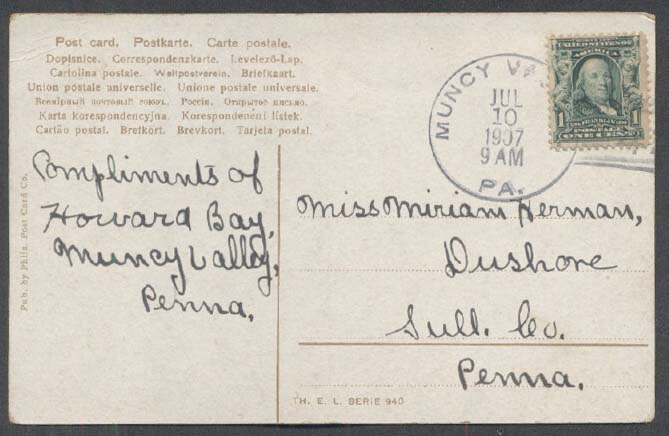 Post card. Postkarte. Carte postale.
Dopisnice. Correspondenzkarte. Levelező-Lap.
Cartolina postale. Weltpostverein. Briefkaart.
Union postale universelle. Unione postale universale.
Всемірный почтовый союзъ. Россія. Открытое письмо.
Karta korespondencyjna. Korespondenční lístek.
Cartão postal. Brefkort. Brevkort. Tarjeta postal.
MUNCY VA
JUL
10
1907
9 AM
PA.
UNITED STATES OF
AMERICA
1 1
POSTAGE
ONE CENT
Compliments of
Howard Bay,
Muncy Valley,
Penna.
Miss Miriam Herman,
Dushore
Sull. Co.
Penna.
Pub. by Phila. Post Card Co.
TH. E. L. SERIE 940